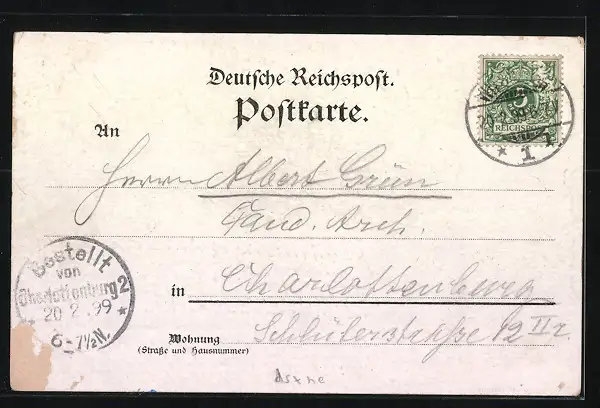 Deutsche Reichspost.
Postkarte.
20.2.99
5
REICHSPOST
1
An
Herrn Albert Grün
Cand. Arch.
in Charlottenburg
Wohnung Schlüterstraße 12 II r.
(Straße und Hausnummer)
Bestellt
von
Charlottenburg 2
20 2. 99
6-7½N.